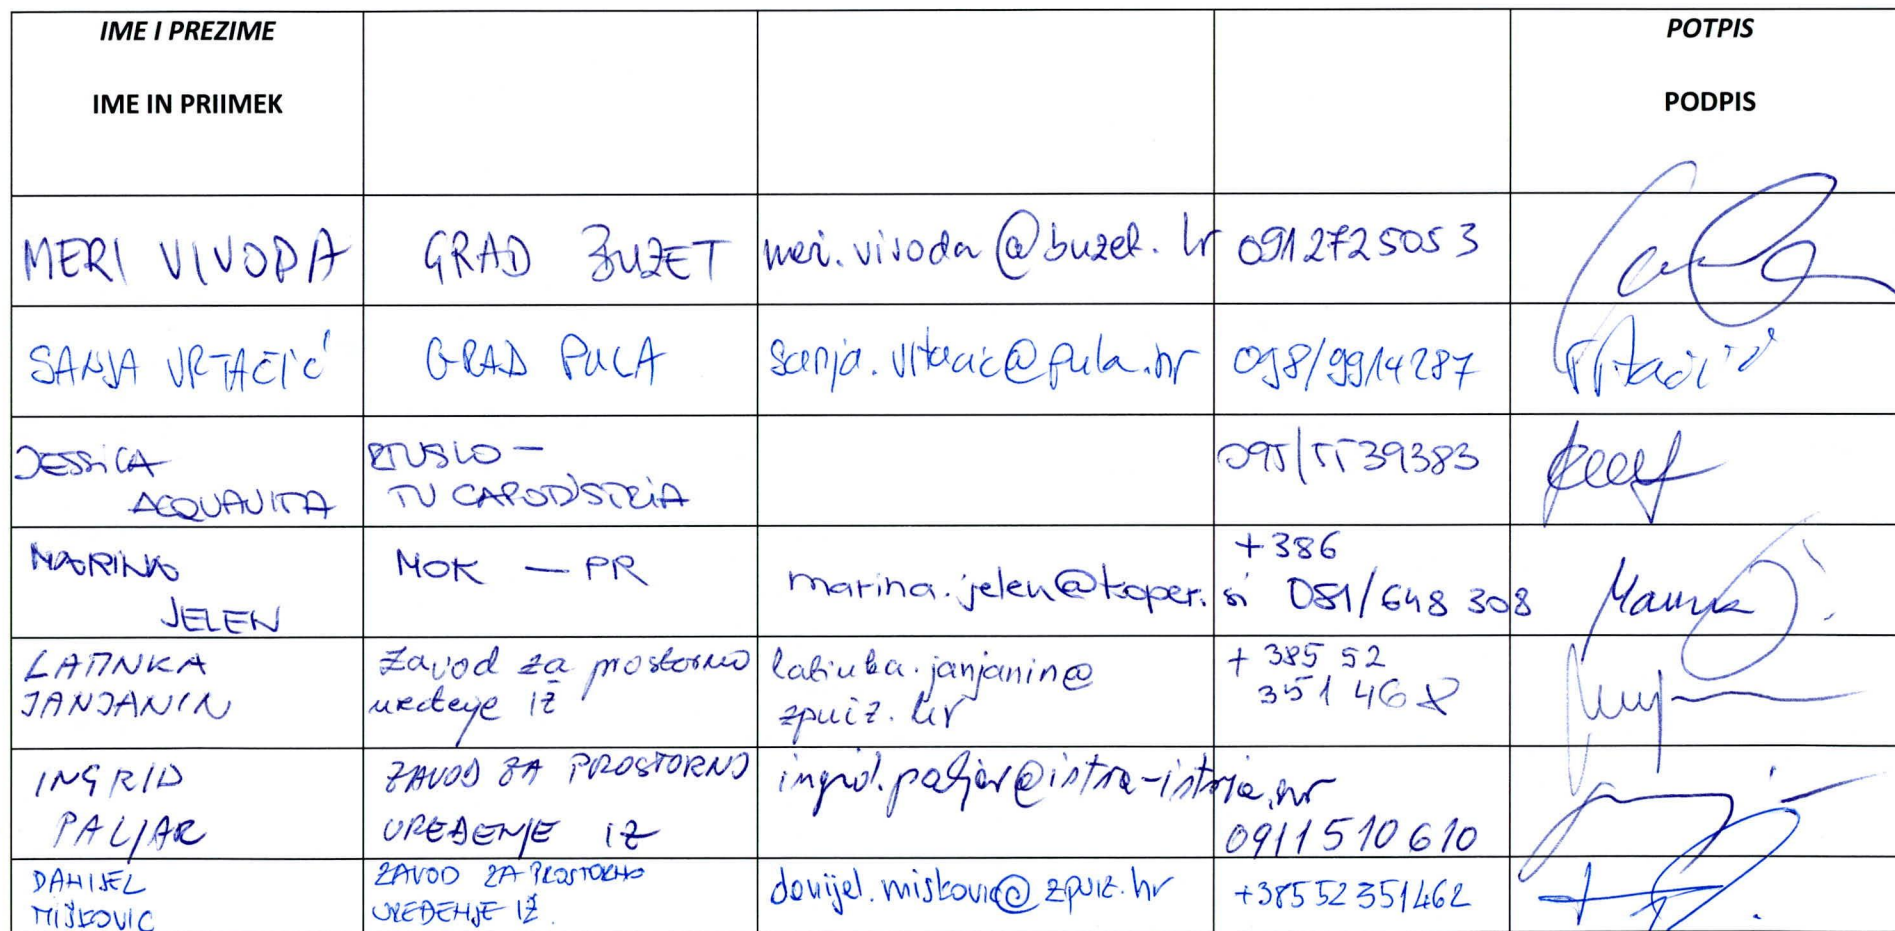 IME I PREZIME
POTPIS
IME IN PRIIMEK
PODPIS
MERI VIVODA GRAD BUZET meri.vivoda@buzet.hr 0912725053
SANJA VRTAČIĆ GRAD PULA sanja.vrtacic@pula.hr 098/9914287
JESSICA
ACQUAVITA
TU CAPODISTRIA
095/5539383
MARINA
JELEN
MOK — PR
marina.jelen@koper.si
+386
081/648 308
LATINKA
JANJANIN
Zavod za prostorno
uređenje IŽ
latinka.janjanin@
zpuiz.hr
+ 385 52
351 468
INGRID
PALJAR
ZAVOD ZA PROSTORNO
UREĐENJE IŽ
ingrid.paljar@istra-istria.hr
0911510610
DANIJEL
MIŠKOVIC
ZAVOD ZA PROSTORNO
UREĐENJE IŽ.
danijel.miskovic@zpuiz.hr
+38552351462